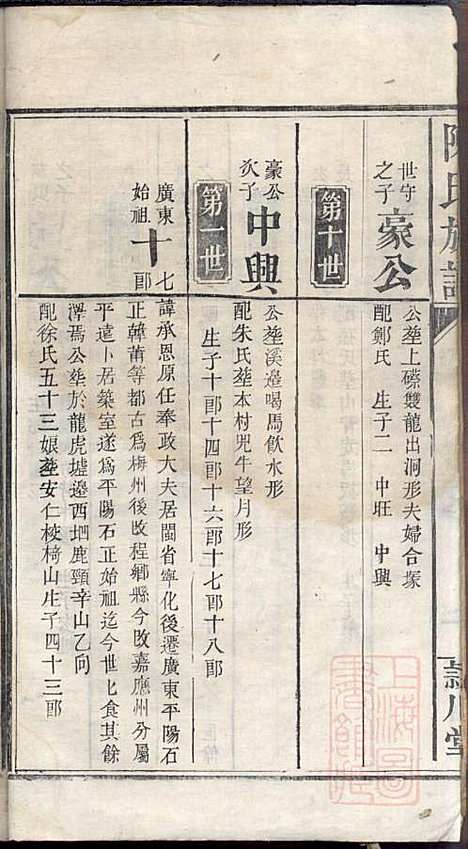 陳氏族譜
穎川堂
世守
之子
豪公
公塟上磜雙龍出洞形夫婦合塚
配鄭氏 生子二 中旺 中興
第十世
豪公
次子
中興
公塟溪邊喝馬飲水形
配朱氏塟木村兕牛望月形
生子十郎十四郎十六郎十七郎十八郎
第一世
廣東
始祖
十七郎
諱承恩原任奉政大夫居閩省寧化後遷廣東平陽石
正韓莆等都古爲梅州後改程鄉縣今改嘉應州分屬
平遠卜居築室遂爲平陽石正始祖迄今世比食其餘
澤焉公塟於龍虎墟邊西坥鹿頸辛山乙向
配徐氏五十三娘塟安仁棱𣖕山生子四十三郎
上海圖書館藏